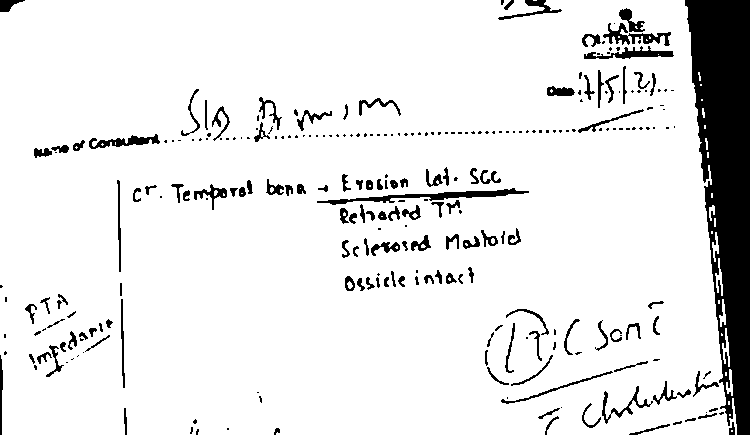 CARE
OUTPATIENT
Date 7/5/21
Name of Consultant S/B Dr
CT. Temporal bone → Erosion Lat. SCC
Retracted TM
Sclerosed Mastoid
Ossicle intact
PTA
Impedance
LT CSOM